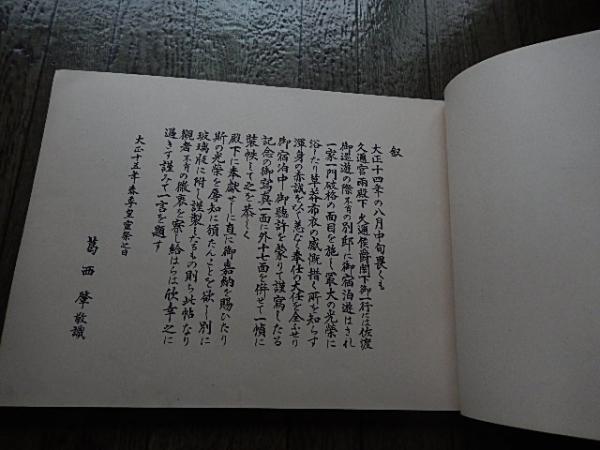 叙
大正十四年の八月中旬畏くも
久邇宮両殿下久邇侯爵閣下御一行には佐渡
御巡遊の際不肖の別邸に御宿泊遊はされ
一家一門破格の面目を施し最大の光栄に
浴したり草莽布衣の感慨措く所を知らす
渾身の赤誠を以て恙なく奉仕の大任を全ふせり
御宿泊中御聴許を蒙りて謹写したる
記念の御写真一面に外十七面を併せて一幀に
装帙して之を恭しく
殿下に奉献せしに直に御嘉納を賜ひたり
斯の光栄を諸知に頒たんことを欲し別に
玻璃版に附し謹製したるもの則ち此帖なり
観者不肖の微衷を察し給はらは欣幸之に
過きす謹みて一言を題す
大正十五年春季皇霊祭之日
葛西肇敬識